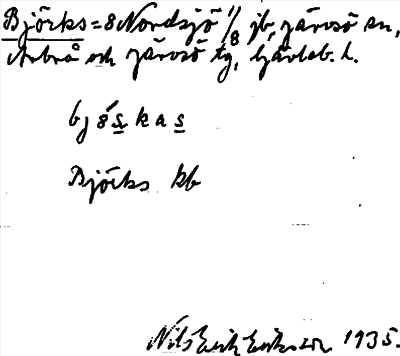 Björks = 8 Nordsjö 1/8 jb, Järvsö sn,
Arbrå och Järvsö tg, Gävleb. l.
bjö́s̲kas̲
Björks kb
Nils Erik Eriksson 1935.